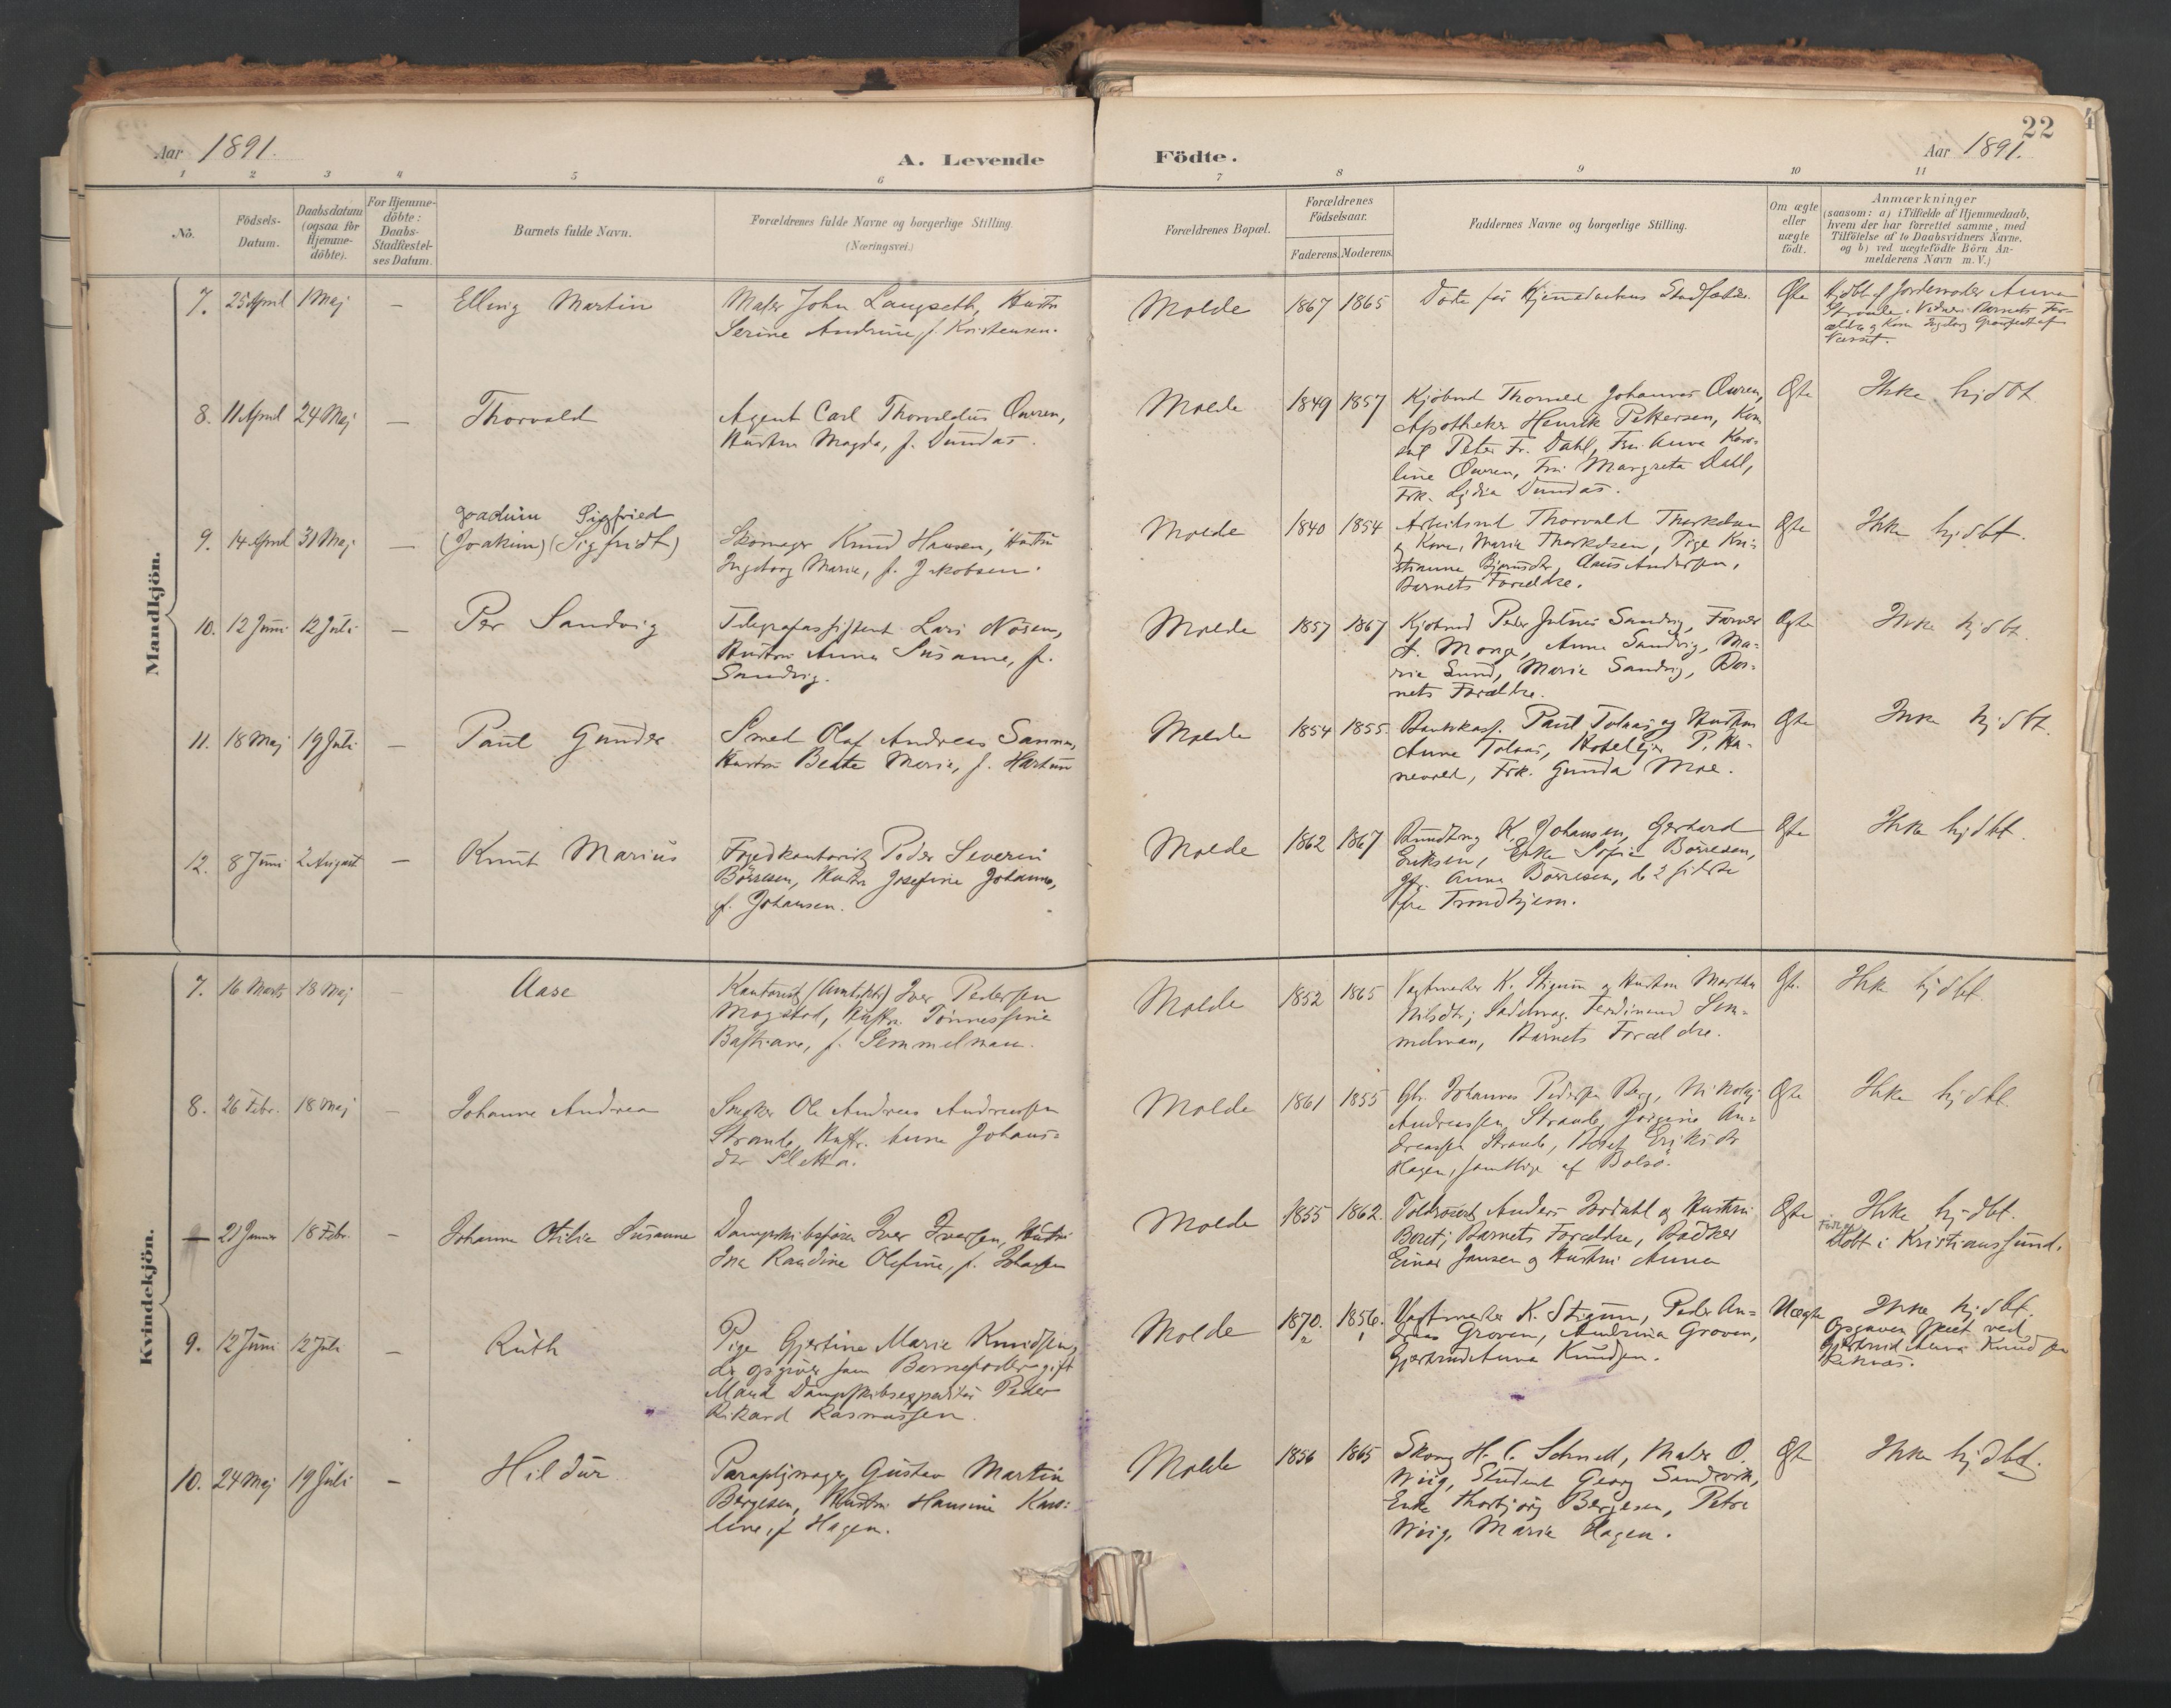 22
Aar 1891.
A. Levende Födte.
Aar 1891.
1 2 3 4 5 6 7 8 9 10 11
No.
Födsels-Datum.
Daabsdatum (ogsaa for Hjemme-döbte).
For Hjemme-döbte: Daabs-Stadfæstel-ses Datum.
Barnets fulde Navn.
Forældrenes fulde Navne og borgerlige Stilling.
(Næringsvei.)
Forældrenes Bopæl.
Forældrenes Födselsaar.
Faderens. Moderens.
Faddernes Navne og borgerlige Stilling.
Om ægte eller uægte födt.
Anmærkninger
(saasom: a) i Tilfælde af Hjemmedaab,
hvem der har forrettet samme, med
Tilföielse af to Daabsvidners Navne,
og b) ved uægtefödte Börn An-
melderens Navn m. V.)
Mandkjön.
7. 25 April 1 Maj — Elling Martin
Maler John Langseth, Hustru
Serine Andrine, f. Kristensen.
Molde 1867 1865
Døde før Hjemmedaabens Stadfæstelse.
Ægte
Hjdbt af Jordemoder Anna
Strande. Vidner: Barnets For-
ældre og Kone Ingeborg
Næsset.
8. 11 April 24 Maj — Thorvald
Agent Carl Thorvaldus Owren,
Hustru Magda, f. Dundas.
Molde 1849 1857
Kjøbmd Thorvald Johannes Owren,
Apotheker Henrik Pettersen, Kon
sul Peter Fr. Dahl, Fru Anna Karo-
line Owren, Fru Margrete Dahl,
Frk. Lydia Dundas.
Ægte Ikke hjdbt
9. 14 April 31 Maj — Joachim Sigfried
(Joakim) (Sigfridt)
Skomager Knud Hansen, Hustru
Ingeborg Marie, f. Jakobsen.
Molde 1840 1854
Arbeidsmd Thorvald Thorkelsen
og Kone, Marie Thorkelsen, Pige Kri-
stianne Bjørnsdtr, Claus Andersen,
Barnets Forældre.
Ægte Ikke hjdbt.
10. 12 Juni 12 Juli — Per Sandvig
Telegrafassistent Lars Nøsen,
Hustru Anna Susanne, f.
Sandvig.
Molde 1857 1867
Kjøbmd Peder Julius Sandvig, Farver
A. Monge, Anna Sandvig, Ma-
rie Lund, Marie Sandvig, Bar-
nets Forældre.
Ægte Ikke hjdbt.
11. 18 Maj 19 Juli — Paul Gunder
Smed Olaf Andreas Sannes,
Hustru Beate Marie, f. Hartun
Molde 1854 1855.
Bankkass. Paul Tolaas og Hustru
Anna Tolaas, Hotelejer P. Ha-
nevold, Frk. Gunda Moe.
Ægte Ikke hjdbt.
12. 8 Juni 2 August — Knut Marius
Fogedkontorist Peder Severin
Børresen, Hustru Josefine Johanne,
f. Johansen.
Molde 1862 1867
K. Johansen, Gerhard
Eriksen, Enke Sofie Børresen,
Anna Børresen, de 2 sidste
fra Trondhjem.
Ægte Ikke hjdbt.
Kvindekjön.
7. 16 Marts 18 Maj — Aase
Kontorist (Amtsktr) Iver Pedersen
Magstad, Hustru Tønnessine
Bastiane, f. Semmelman.
Molde 1852 1865
Vagtmester K. Stigum og Hustru Martha
Nilsdtr; Sadelmag. Ferdinand Sem-
melman, Barnets Forældre.
Ægte. Ikke hjdbt.
8. 26 Febr. 18 Maj — Johanne Andrea
Snedker Ole Andreas Andreassen
Strande, Hustr. Anna Johans-
dtr Sletta.
Molde 1861 1855
Johannes Pedersen Berg, Nikolaj
Andreassen Strande, Jørgine An-
dreassen Strande, Beret Eriksdtr
Hagen, samtlige af Bolsø.
Ægte Ikke hjdbt
— 21 Januar 18 Febr. — Johanne Otilie Susanne
Dampskibsfører Iver Iversen, Hustru
Ine Randine Olefine, f. Johansen
Molde 1855 1862.
Toldrorsbt Anders Hordahl og Hustru
Beret; Barnets Forældre, Bødker
Einar Jansen og Hustru Anna
Ægte Ikke hjdbt.
Født og
Døbt i Kristianssund.
9. 12 Juni 12 Juli — Ruth
Pige Gjertine Marie Knudsen,
der opgiver som Barnefader gift
Mand Dampskibsexpeditør Peder
Rikard Rasmussen.
Molde 1870. 1856.
Vagtmester K. Stigum, Peder An-
dreas Groven, Andrina Groven,
Gjertrud Anna Knudsen.
Uægte Ikke hjdbt.
Opgaven skeet ved
Gjertrud Anna Knudsen
Reknæs.
10. 24 Maj 19 Juli — Hildur
Paraplymager Gustav Martin
Bergesen, Hustru Hansine Karo-
line, f. Hagen.
Molde 1856 1865
Skomg H. C. Schnell, Maler O.
Wiig, Student Georg Sandvik,
Enke Thorbjørg Bergesen, Petra
Wiig, Marie Hagen.
Ægte Ikke hjdbt.